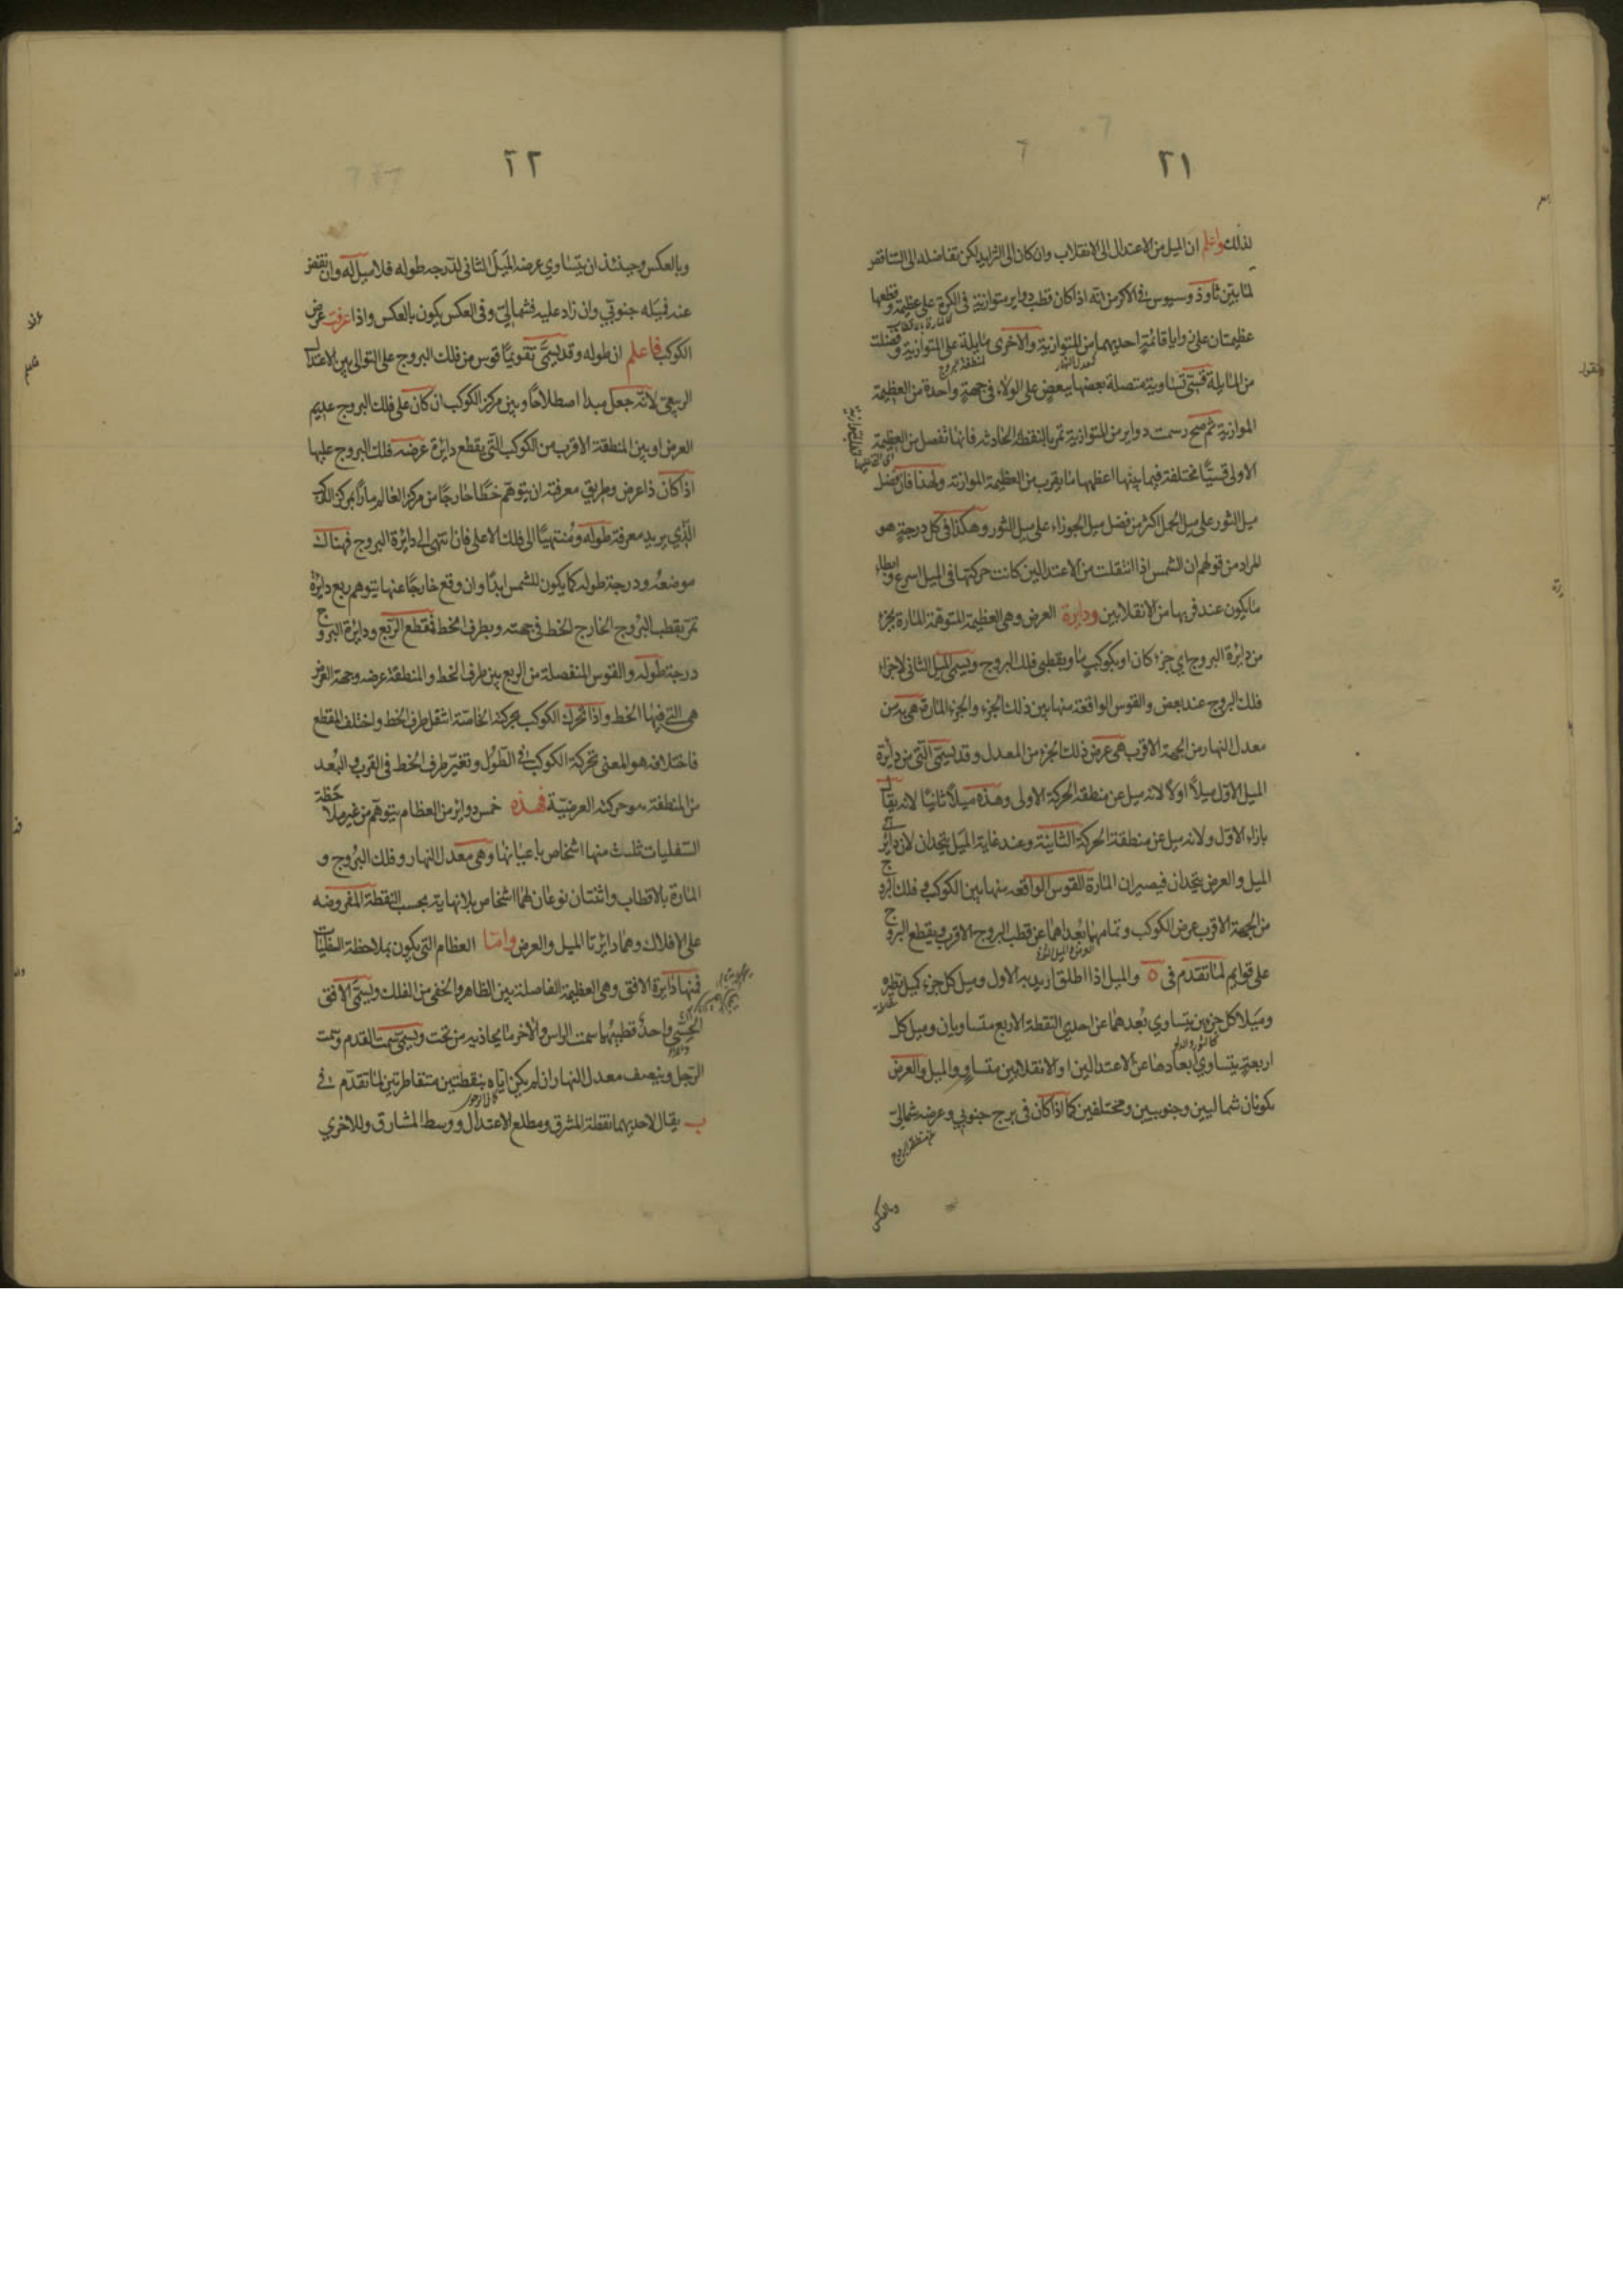 ٢١
لذلك واعلم ان الميل من الاعتدال الى الانقلاب وان كان الى التزايد لكن تفاضله الى التناقص
لما بيّن ثاوذوسيوس في الاكر من انه اذا كان قطب دواير متوازية في الكرة على عظيمة وقطعها
عظيمتان على زوايا قائمة احديهما من المتوازية والاخرى مايلة على المتوازية وفصلت
من المايلة قسي متساوية متصلة بعضها ببعض على الولاء في جهة واحدة من العظيمة
الموازية ثم رسمت دواير من المتوازية تمر بالنقطة الحادثة فانها تفصل من العظيمة
الاولى قسيًا مختلفة فيما بينها اعظمها ما يقرب من العظيمة الموازية ولهذا فان فضل
ميل الثور على ميل الحمل اكثر من فضل ميل الجوزاء على ميل الثور وهكذا في كل درجة هو
المراد من قولهم ان الشمس اذا انتقلت من الاعتدالين كانت حركتها في الميل اسرع وابطاء
ما يكون عند قربها من الانقلابين ودايرة العرض وهي العظيمة المتوهمة المارة بجزء
من دائرة البروج اي جزء كان او بكوكب ما وبقطبي فلك البروج ويسمى الميل الثاني لاجزاء
فلك البروج عند بعض والقوس الواقعة منها بين ذلك الجزء والجزء المارة هي به من
معدل النهار من الجهة الاقرب هي عرض ذلك الجزء من المعدل وقد يسمى التي من دايرة
الميل الاول ميلاً اولاً لانه ميل عن منطقة الحركة الاولى وهذه ميلاً ثانيًا لانه يقال
بازاء الاول ولانه ميل عن منطقة الحركة الثانية وعند غاية الميل يتحدان لان دائرتي
الميل والعرض يتحدان فيصيران المارة القوس الواقعة منها بين الكوكب وفلك البروج
من الجهة الاقرب عرض الكوكب وتمامها بُعد اهما عن قطب البروج الاقرب ويقطع البروج
على قوايم لما تقدم في ٥ والميل اذا اطلق اريد به الاول وميل كل جزء كميل نظيره
وميلا كل جزءين يتساوي بُعدهما عن احدى النقطة الاربع متساويان وميل كل
اربعة يتساوي ابعادها عن الاعتدالين او الانقلابين متساوٍ والميل والعرض
يكونان شماليين وجنوبيين ومختلفين كما اذا كان في برج جنوبي وعرضه شمالي
وبالعكس
٢٢
وبالعكس وحينئذ ان يتساوي عرضه الميل الثاني لدرجة طوله فلا ميل له وان نقض
عنه فميله جنوبي وان زاد عليه فشمالي وفي العكس يكون بالعكس واذا عرفت عرض
الكوكب فاعلم ان طوله وقد يسمى تقويمًا قوس من فلك البروج على التوالي بين الاعتدال
الربيعي لانه جعل مبدأ اصطلاحًا وبين مركز الكوكب ان كان على فلك البروج عديم
العرض او بين المنطقة الاقرب من الكوكب التي يقطع دايرة عرضه فلك البروج عليها
اذا كان ذا عرض وطريق معرفته ان يتوهم خطًا خارجًا من مركز العالم مارًا بمركز الكوكب
الذي يريد معرفة طوله ومُنتهيًا الى فلك الاعلى فان انتهى الى دائرة البروج فهناك
موضعه ودرجة طوله كما يكون للشمس ابدًا وان وقع خارجًا عنها يتوهم ربع دايرة
تمر بقطب البروج الخارج الخط في جهته وبطرف الخط فمقطع الربع ودايرة البروج
درجة طوله والقوس المنفصلة من الربع بين طرف الخط والمنطقة عرضه وجهة العرض
هي التي فيها الخط واذا تحرك الكوكب بحركته الخاصة انتقل طرف الخط واختلف المقطع
فاختلافه هو المعني بحركة الكوكب في الطول وتغيّر طرف الخط في القرب والبُعد
من المنطقة هو حركته العرضيّة فهذه خمس دواير من العظام يتوهم من غير ملاحظة
السفليات ثلث منها اشخاص باعيانها وهي معدل النهار وفلك البروج و
المارة بالاقطاب واثنتان نوعان لهما اشخاص بلا نهاية بحسب النقطة المفروضة
على الافلاك وهما دايرتا الميل والعرض وامّا العظام التي يكون بملاحظة السفليات
فمنها دايرة الافق وهي العظيمة الفاصلة بين الظاهر والخفي من الفلك ويسمى الافق
الحسّي واحد قطبيها سمت الراس والاخر ما يحاذيه من تحت ويسمى سمت القدم وسمت
الرجل وينصف معدل النهار ان لم يكن اياه بنقطتين متقاطرتين لما تقدم في
ب يقال لاحديهما نقطة المشرق ومطلع الاعتدال ووسط المشارق وللاخرى